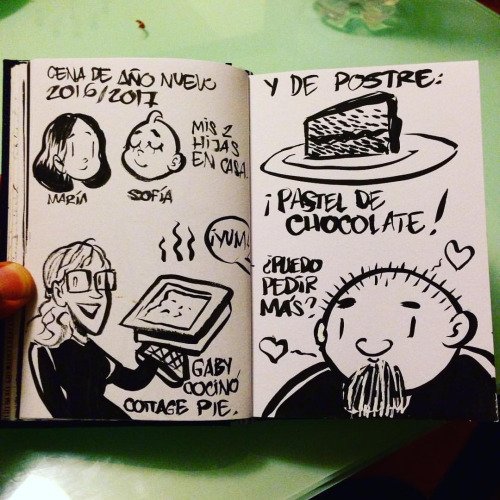 CENA DE AÑO NUEVO
2016/2017
MIS 2
HIJAS
EN CASA.
MARÍA
SOFÍA
¡YUM!
GABY
COCINÓ
COTTAGE PIE.
Y DE POSTRE:
¡PASTEL DE
CHOCOLATE!
¿PUEDO
PEDIR
MÁS?